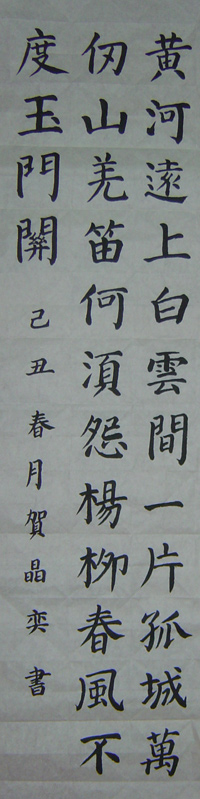 黃河遠上白雲間一片孤城萬
仞山羌笛何須怨楊柳春風不
度玉門關
己丑春月賀晶奕書